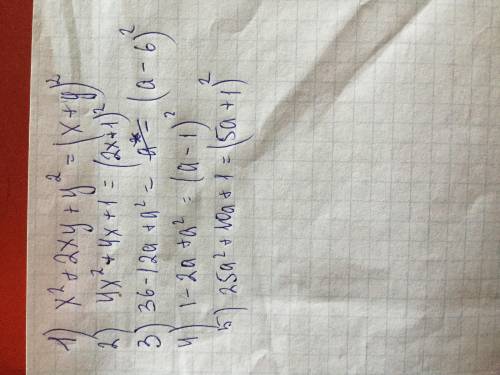 1) x² + 2xy + y² = (x + y)²
2) 4x² + 4x + 1 = (2x + 1)²
3) 36 - 12a + a² = (a - 6)²
4) 1 - 2a + a² = (a - 1)²
5) 25a² + 10a + 1 = (5a + 1)²